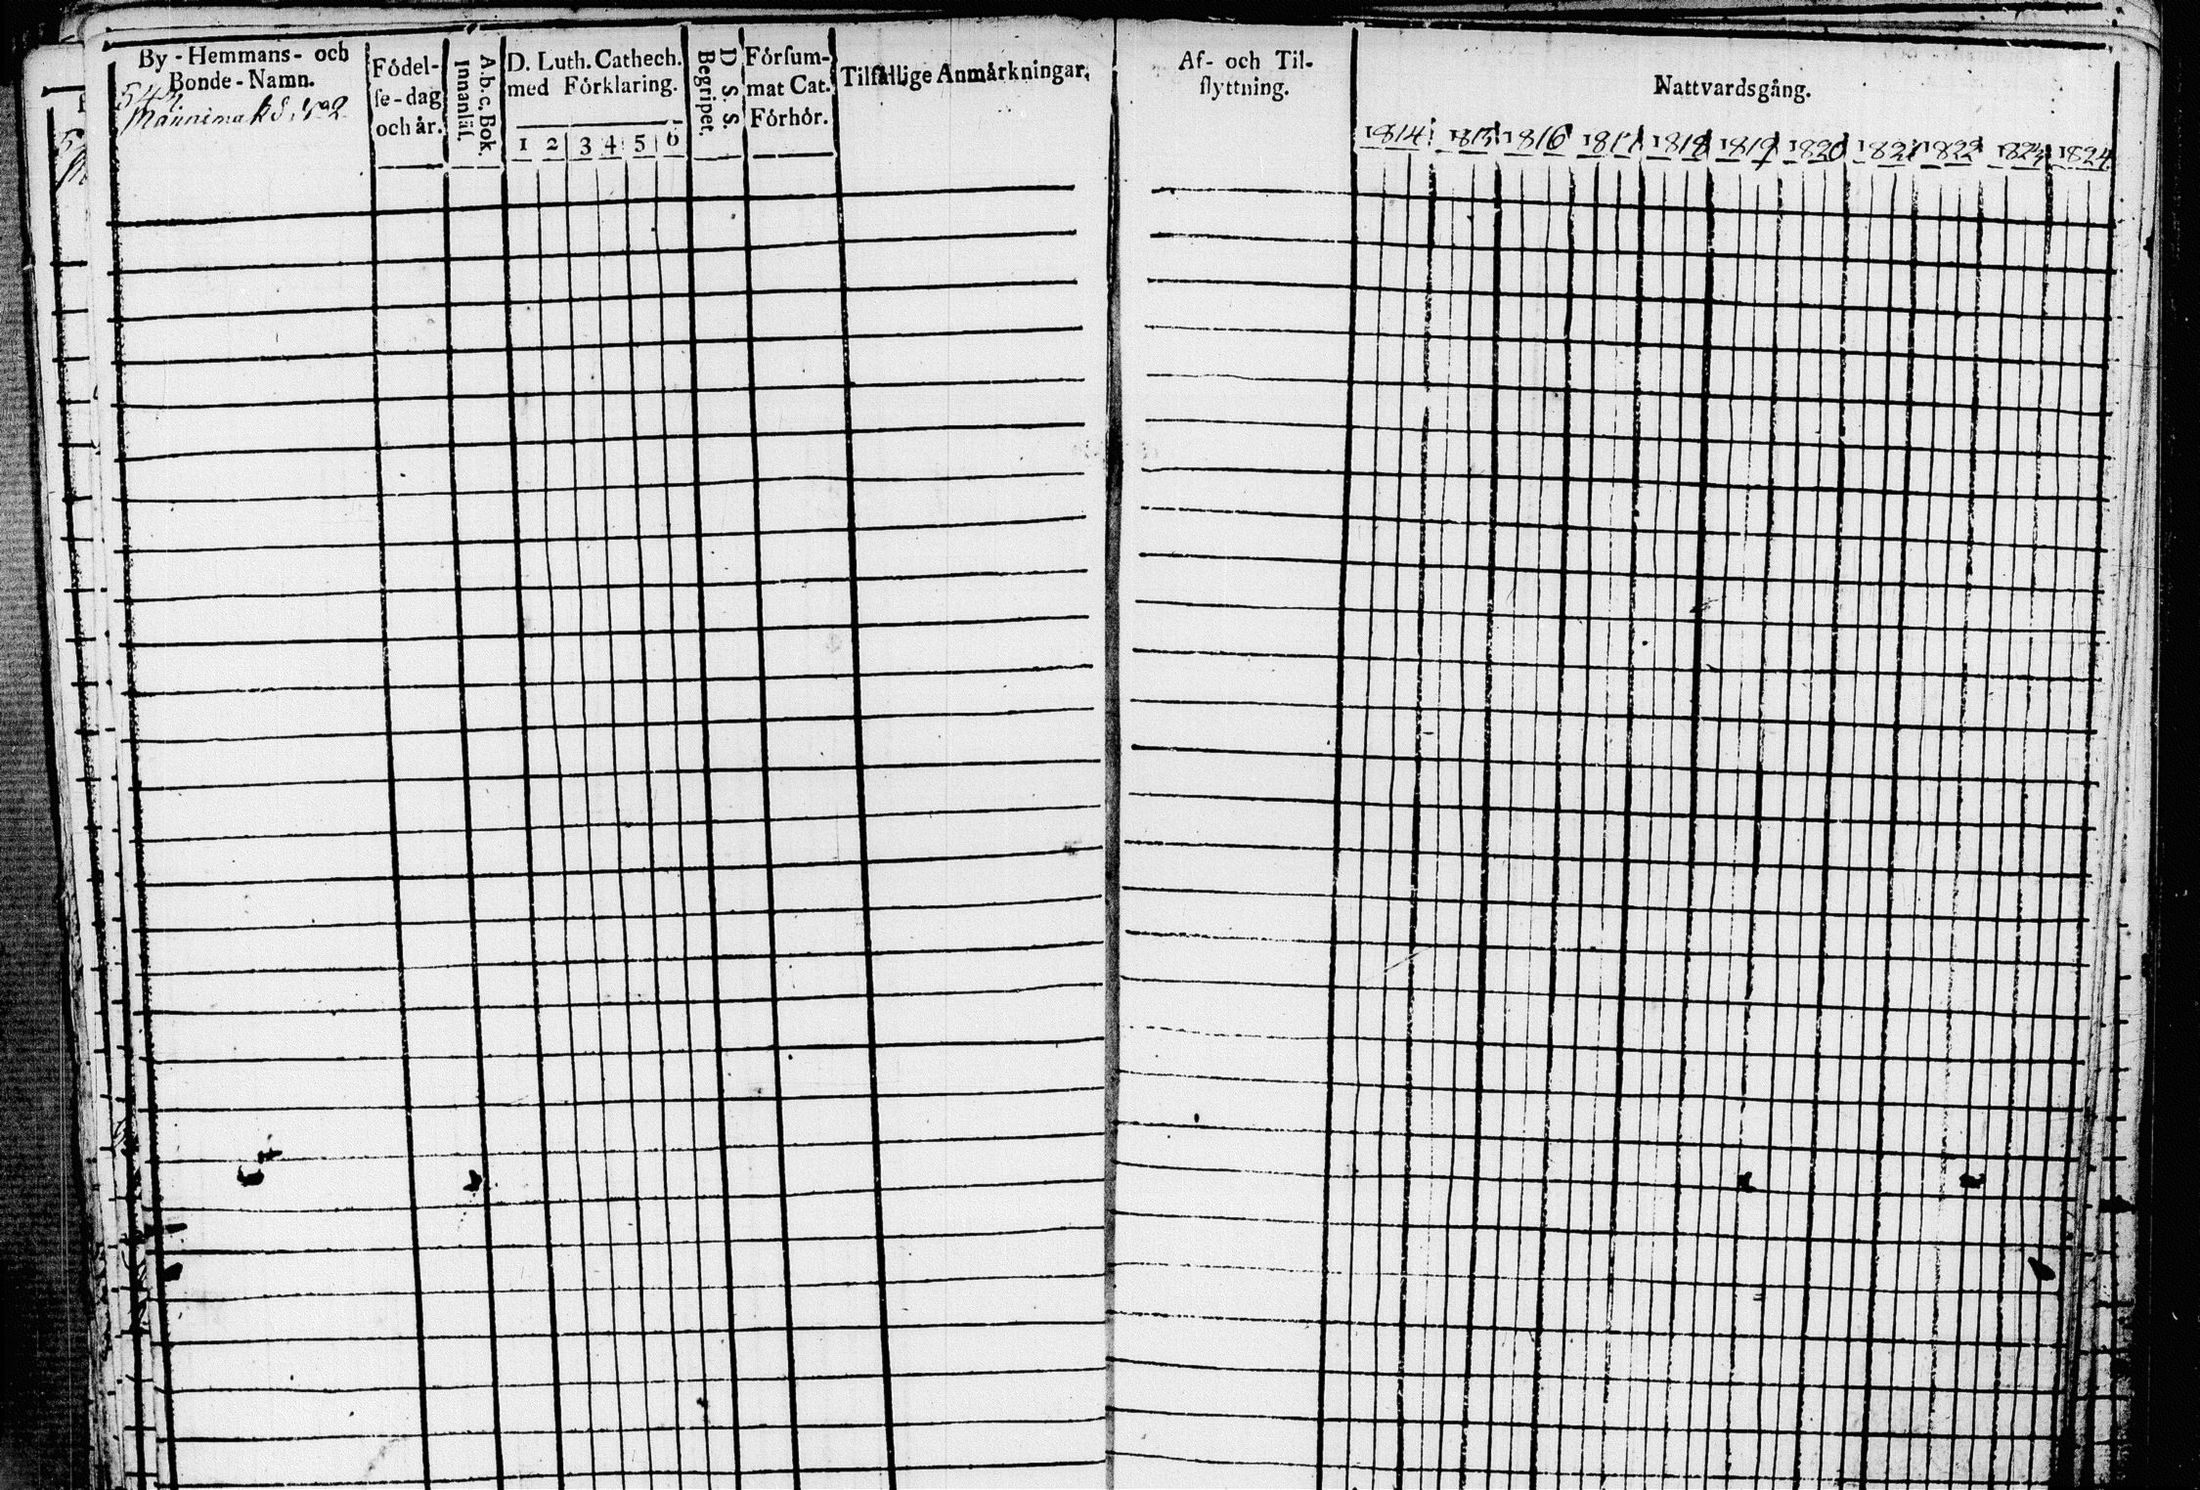 By - Hemmans- och
Bonde-Namn.
542.
Mannimaks. No 2
Födel-
ſe-dag
och år.
A.b.c. Bok.
Innanläſ.
D. Luth. Cathech.
med Förklaring.
1 2 3 4 5 6
D. S. S.
Begripet.
Förſum-
mat Cat.
Förhör.
Tilfällige Anmärkningar.
Af- och Til-
flyttning.
Nattvardsgång.
1814 1815 1816 1817 1818 1819 1820 1821 1822 1823 1824